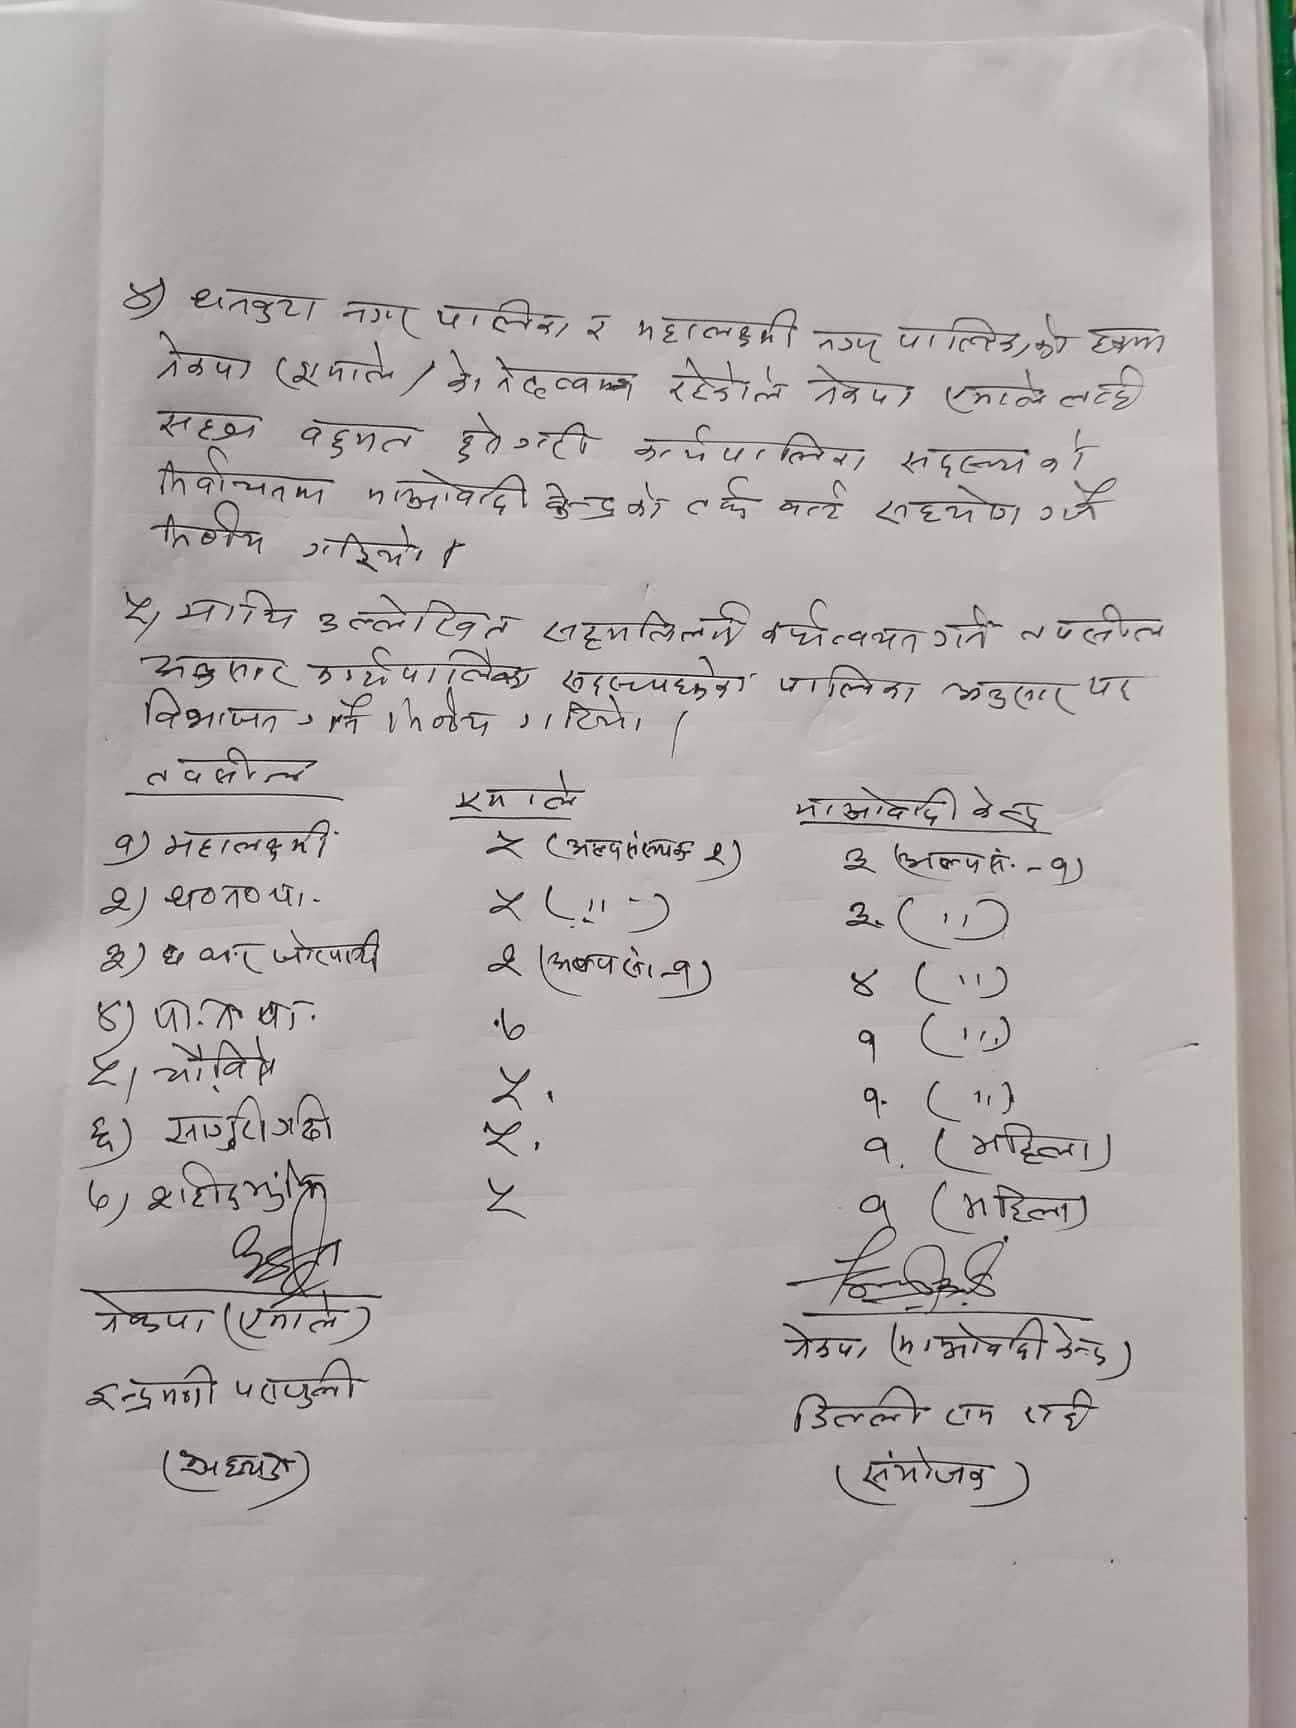 ४) धनकुटा नगर पालिका र महालक्ष्मी नगर पालिकाको हकमा
नेकपा (एमाले) को नेतृत्वमा रहेकोले नेकपा एमाले तर्फ
सहज बहुमत हुनेगरी कार्यपालिका सदस्यको
निर्वाचनमा माओवादी केन्द्रको तर्फ बाट सहयोग गर्ने
निर्णय गरियो।
५) माथि उल्लेखित सहमतिलाई कार्यन्वयन गर्न तपसील
अनुसार कार्यपालिका सदस्यहरुको पालिका अनुसार पद
विभाजन गर्ने निर्णय गरियो।
तपसील एमाले माओवादी केन्द्र
१) महालक्ष्मी ५ (अल्पसंख्यक २) ३ (अल्पसं. -१)
२) ध०न०पा. ५ ( ,, -) ३. ( ,, )
३) छथर जोरपाटी २ (अल्पसं.-१) ४ ( ,, )
४) पा.न.पा. ७ १ ( ,, )
५) चौविसे ५. १. ( ,, )
६) सागुरीगढी ५. १. (महिला)
७) शहीदभुमि ५ १ (महिला)
नेकपा (एमाले) नेकपा (माओवादी केन्द्र)
इन्द्रमणी पराजुली डिल्ली राम राई
(अध्यक्ष) (संयोजक)